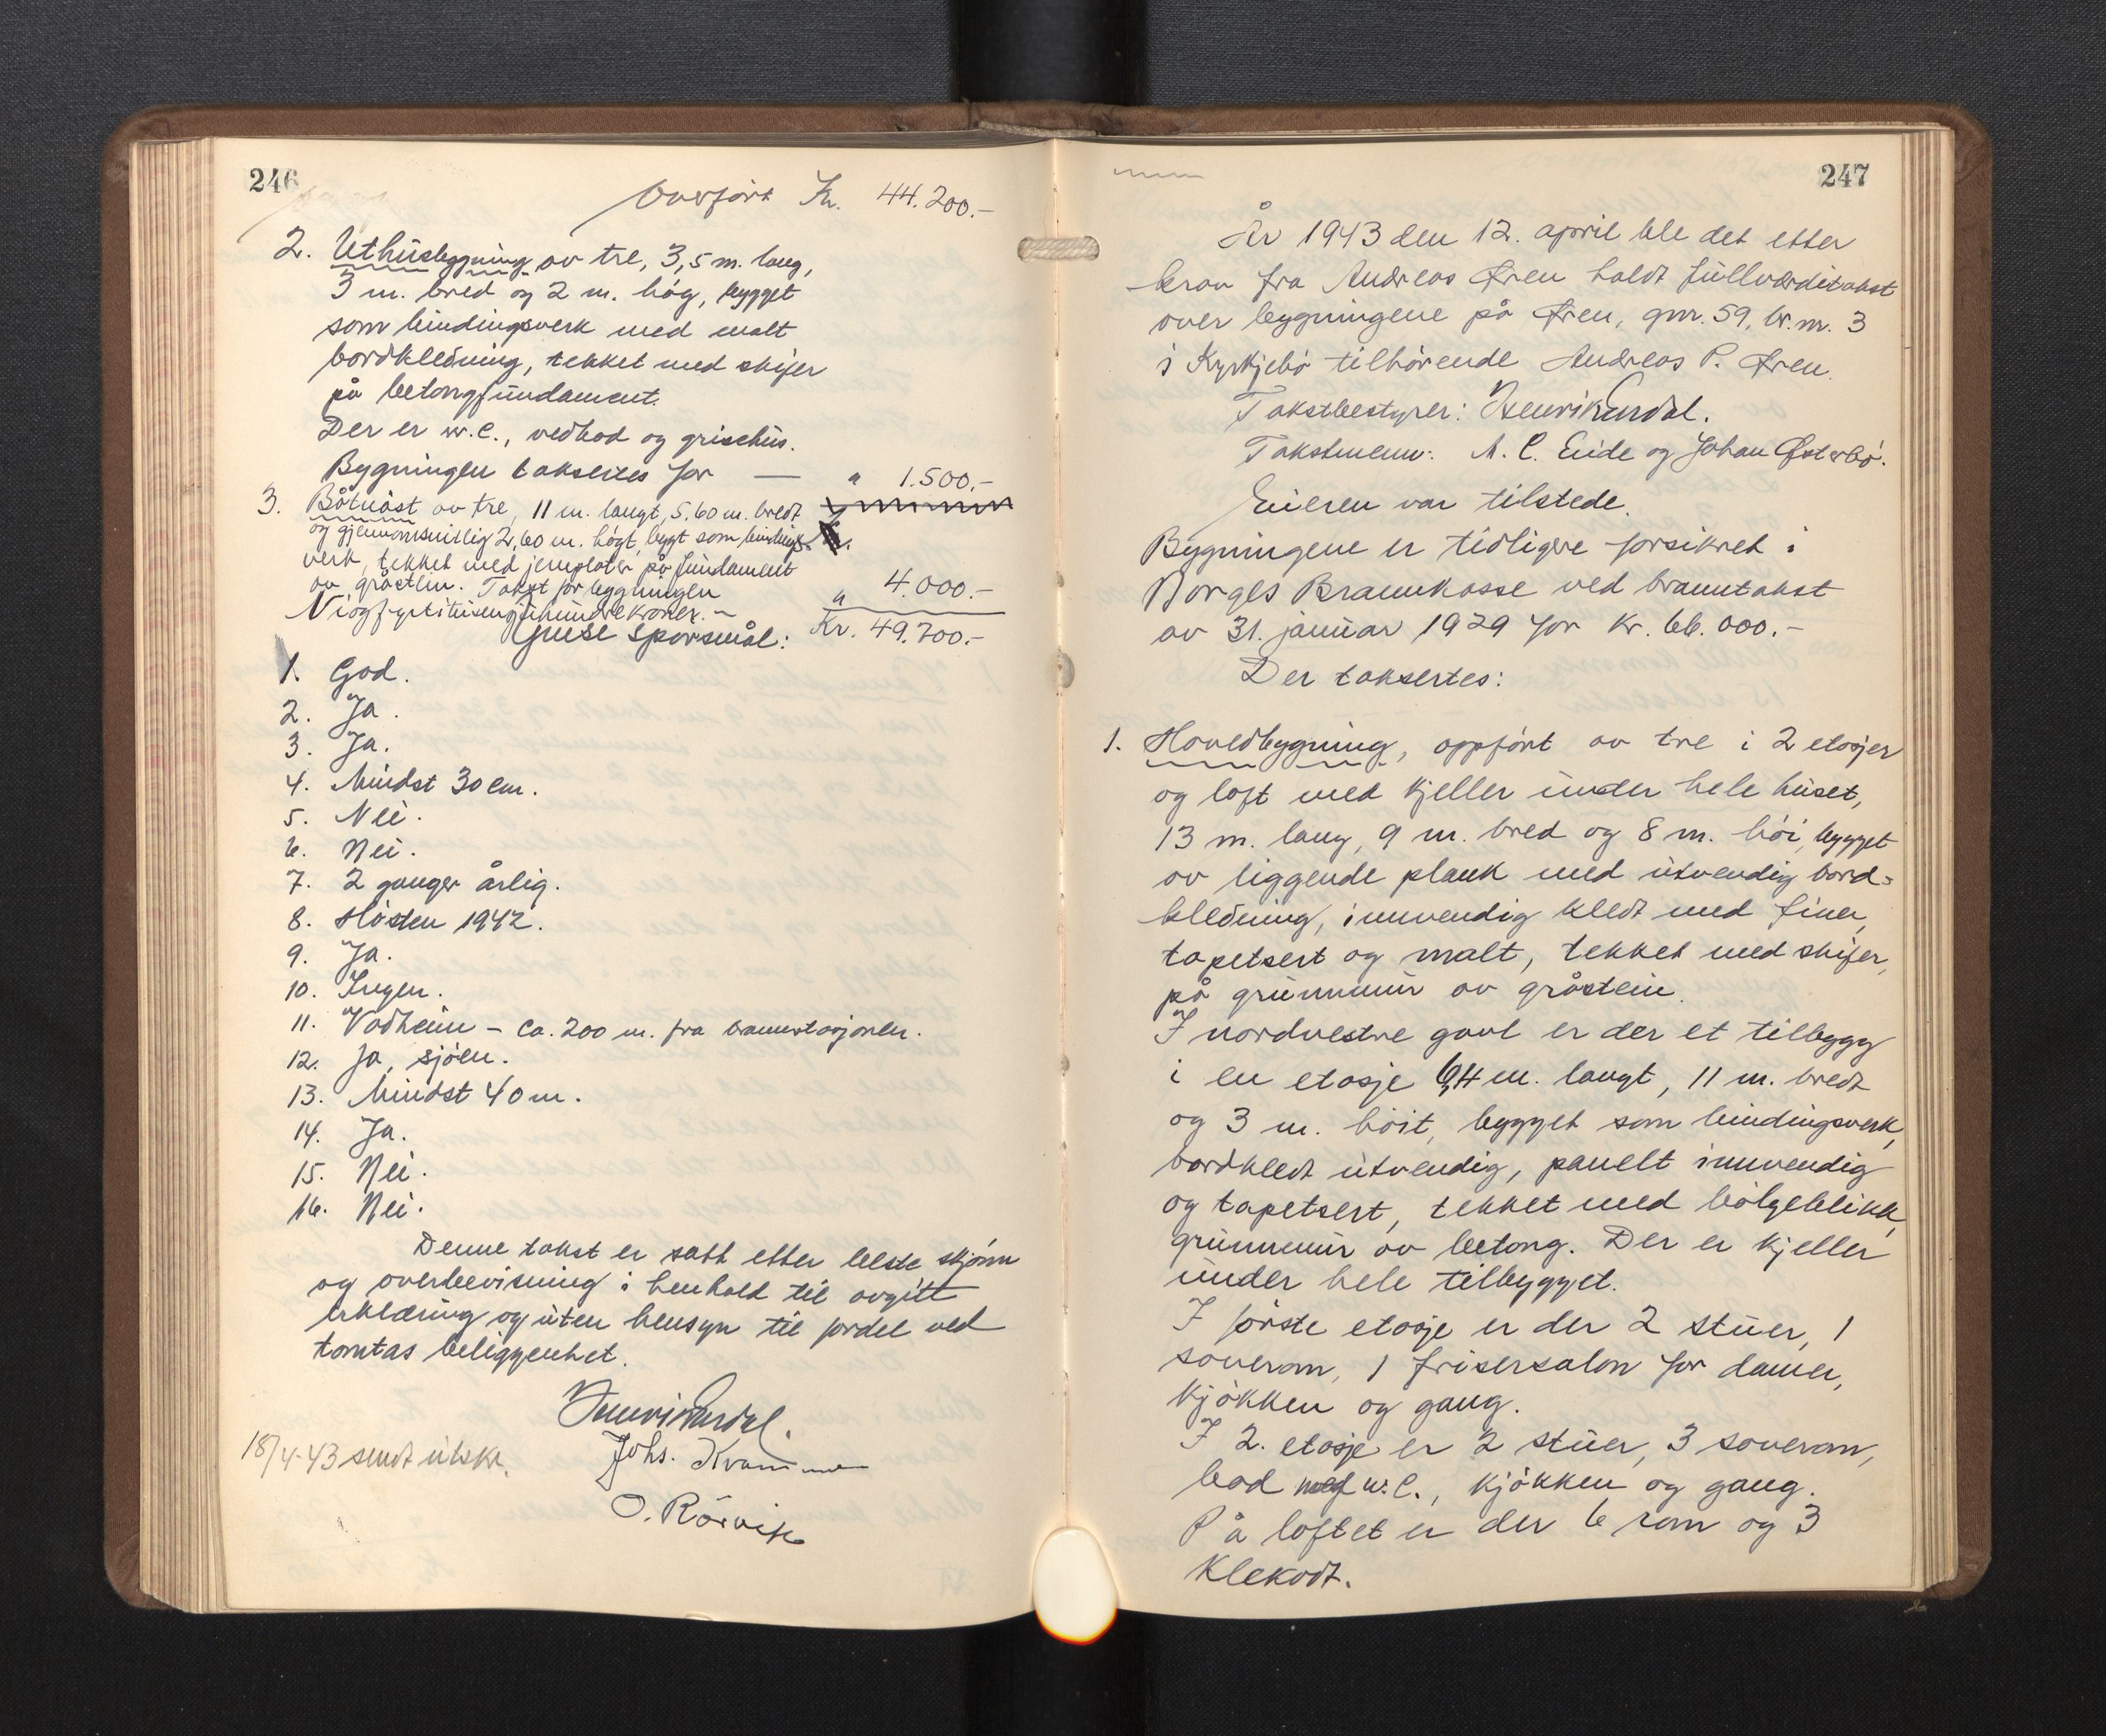 246
Overført Kr. 44.200.-
2. Uthusbygning av tre, 3,5 m. lang,
3 m. bred og 2 m. høg, bygget
som bindingsverk med malt
bordkledning, tekket med skifer
på betongfundament.
Der er w.c., vedbod og grisehus.
Bygningen takseres for — " 1.500.-
3. Båtnaust av tre, 11 m. langt, 5.60 m. bredt
og gjennomsnitlig 2,60 m. høgt, bygt som bindings-
verk, tekket med jernplater på fundament
av gråstein. Takst for bygningen " 4.000.-
Niogfyrtitusensjuhundrekroner.- Kr. 49.700.-
Øvrige spørsmål:
1. God.
2. Ja.
3. Ja.
4. Mindst 30 cm.
5. Nei.
6. Nei.
7. 2 ganger årlig.
8. Høsten 1942.
9. Ja.
10. Ingen.
11. Vadheim - ca. 200 m. fra brannstasjonen.
12. Ja, sjøen.
13. Mindst 40 m.
14. Ja.
15. Nei.
16. Nei.
Denne takst er satt etter beste skjønn
og overbevisning i henhold til avgitt
erklæring og uten hensyn til fordel ved
tomtas beliggenhet.
Johs. Kvamme
18/4-43 sendt utskr.
O. Rörvik
247
År 1943 den 12. april ble det etter
krav fra Andreas Øren holdt fullverditakst
over bygningene på Øren, gnr. 59, br. nr. 3
i Kyrkjebø tilhørende Andreas P. Øren.
Takstbestyrer:
Takstmenn: A. C. Eide og Johan Østerbø.
Eieren var tilstede.
Bygningene er tidligere forsikret i
Norges Brannkasse ved branntakst
av 31. januar 1929 for kr. 66.000.-
Der takseres:
1. Hovedbygning, oppført av tre i 2 etasjer
og loft med kjeller under hele huset,
13 m. lang, 9 m. bred og 8 m. høi, bygget
av liggende plank med utvendig bord-
kledning, innvendig kledt med finer,
tapetsert og malt, tekket med skifer,
på grunnmur av gråstein.
I nordvestre gavl er der et tilbygg
i en etasje 6,4 m. langt, 11 m. bredt
og 3 m. høit, bygget som bindingsverk,
bordkledt utvendig, panelt innvendig
og tapetsert, tekket med bølgeblikk,
grunnmur av betong. Der er kjeller
under hele tilbygget.
I første etasje er der 2 stuer, 1
soverom, 1 frisersalon for damer,
kjøkken og gang.
I 2. etasje er 2 stuer, 3 soverom,
bad med w.c., kjøkken og gang.
På loftet er der 6 rom og 3
klekodt.